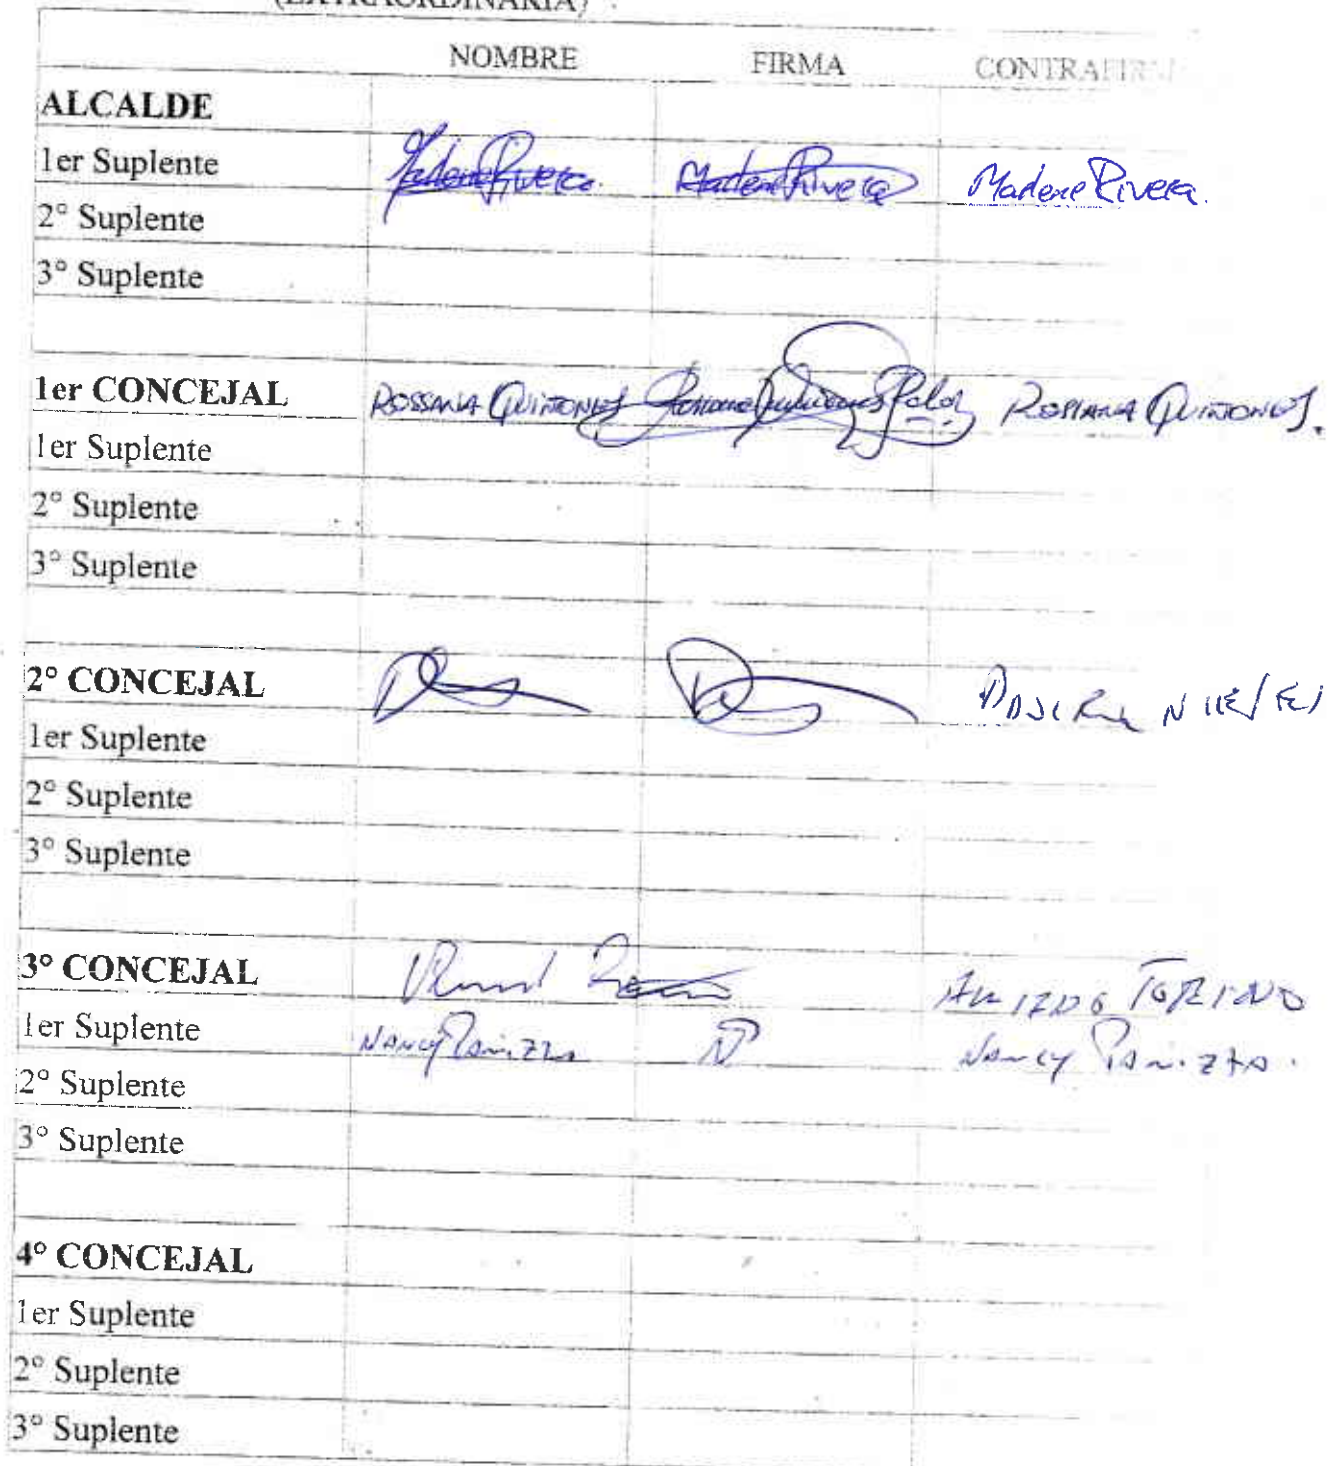 (EXTRAORDINARIA)
NOMBRE FIRMA CONTRAFIRMA
ALCALDE
1er Suplente Marlene Rivera Marlene Rivera Marlene Rivera.
2° Suplente
3° Suplente
1er CONCEJAL ROSSANA QUIÑONES ROSSANA QUIÑONES.
1er Suplente
2° Suplente
3° Suplente
2° CONCEJAL
1er Suplente
2° Suplente
3° Suplente
3° CONCEJAL TORINO
1er Suplente Nancy Panizza N Nancy Panizza.
2° Suplente
3° Suplente
4° CONCEJAL
1er Suplente
2° Suplente
3° Suplente